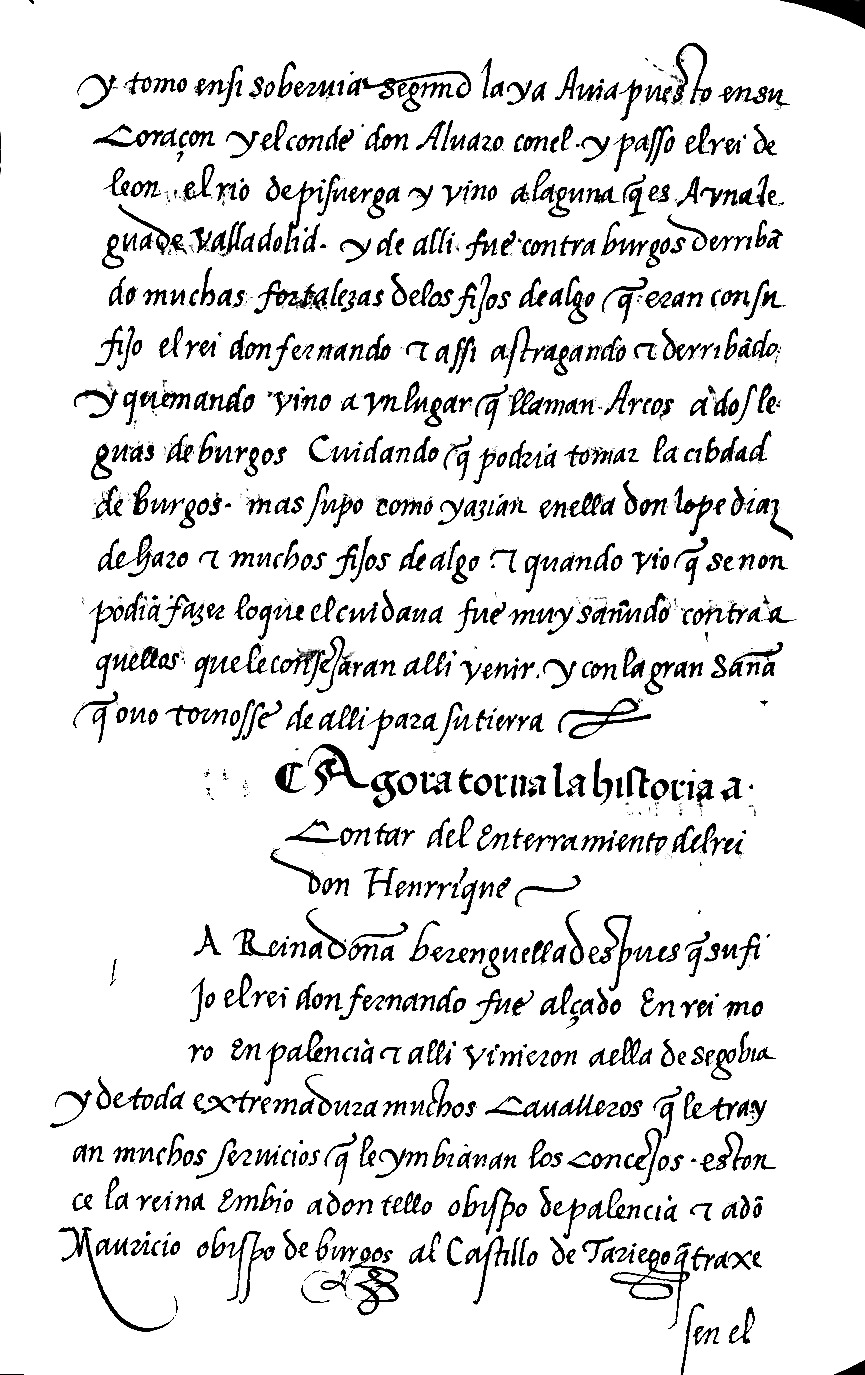 y tomo ensi soberuia segund la ya Auia puesto en su
Coraçon y el conde don Alvaro conel. y passo el rei de
leon el rio de pisuerga y vino a laguna q̃ es A vna le
gua de Valladolid. y de alli fue contra burgos derribã
do muchas fortalezas delos fijos de algo q̃ eran con su
fijo el rei don fernando τ assi astragando τ derribãdo
y quemando vino a vn lugar q̃ llaman Arcos a dos le
guas de burgos Cuidando q̃ podria tomar la cibdad
de burgos. mas supo como yazian en ella don lope diaz
de haro τ muchos fijos de algo τ quando vio q̃ se non
podia fazer lo que el cuidaua fue muy sañudo contra a
quellos que le consejaran alli venir. y con la gran saña
q̃ ovo tornosse de alli para su tierra
¶ Agora torna la historia a
Contar del Enterramiento del rei
don Henrrique
A Reina doña berenguella despues q̃ su fi
jo el rei don fernando fue alçado En rei mo
ro En palencia τ alli vinieron a ella de segobia
y de toda extremadura muchos Cavalleros q̃ le tray
an muchos servicios q̃ le ymbiauan los Concejos. eston
ce la reina Embio a don tello obispo de palencia τ a dõ
Mauricio obispo de burgos al Castillo de Tariego q̃ traxe
sen el